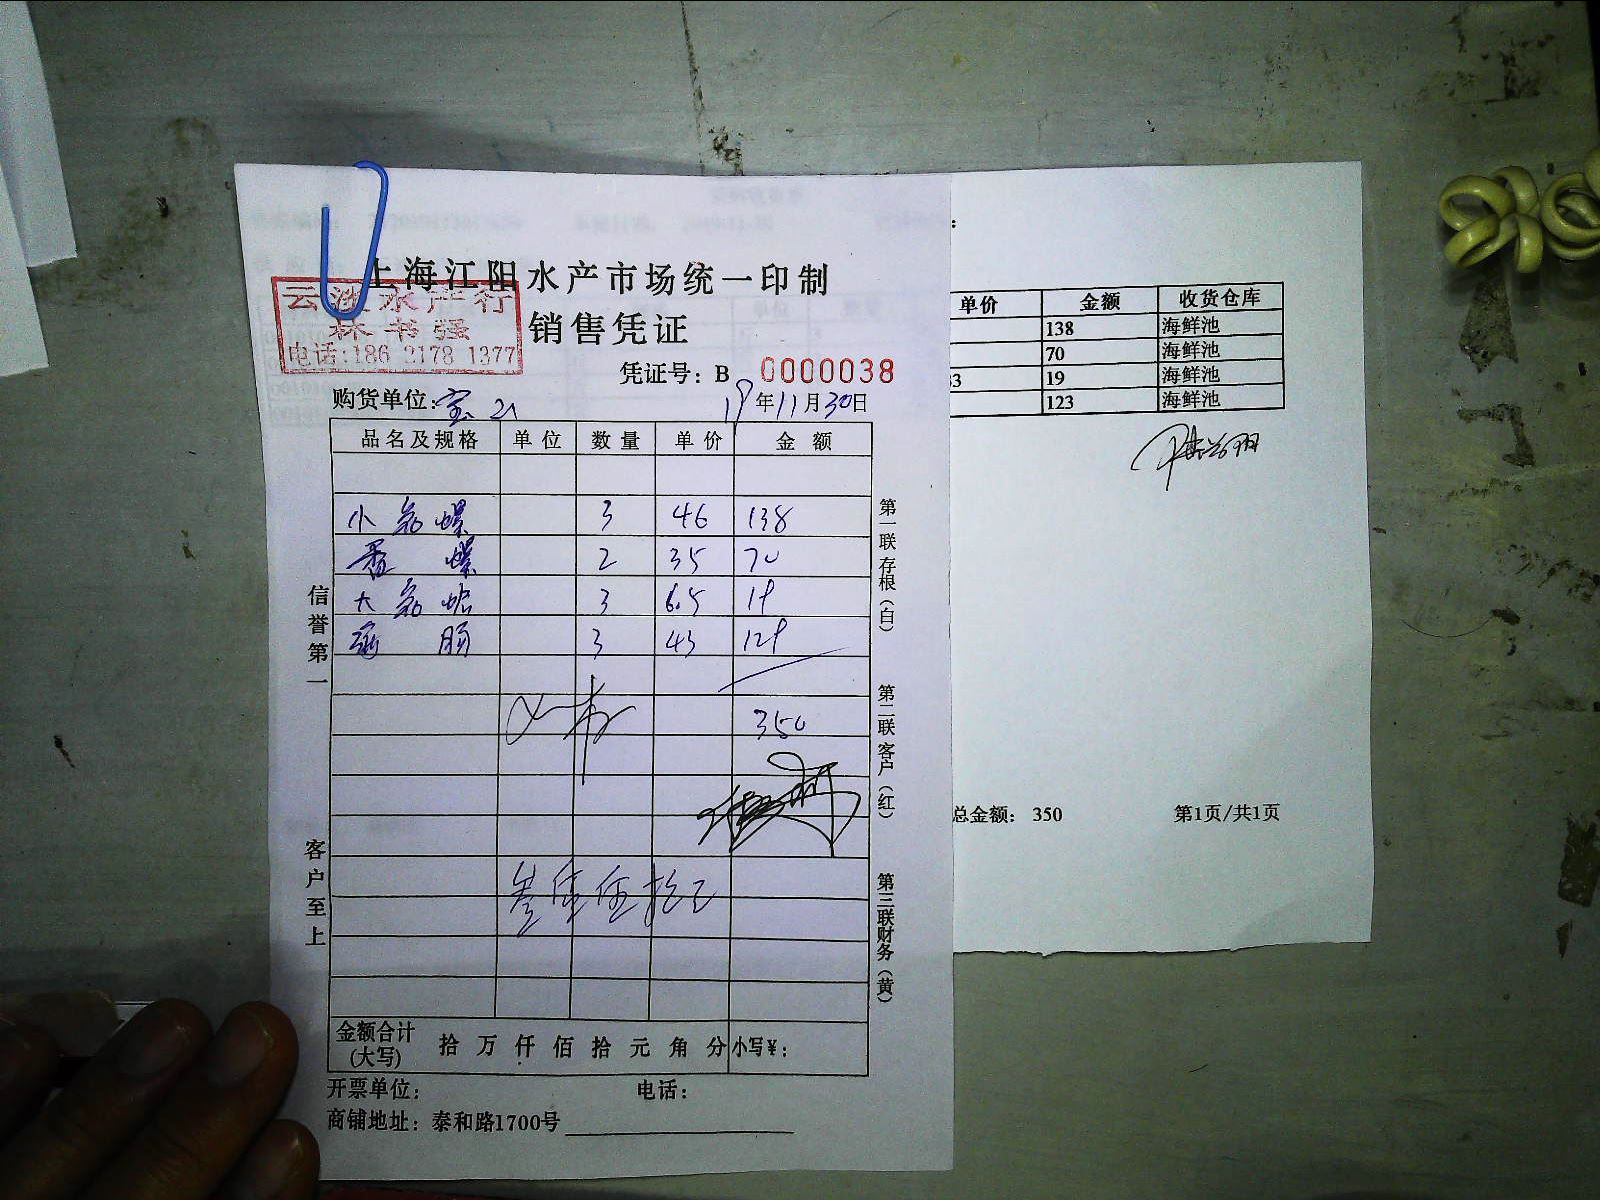 上海江阳水产市场统一印制
云波水产行
林书强
电话:186 2178 1377
销售凭证
凭证号: B 0000038
购货单位:宝山 19年11月30日
品名及规格 单位 数量 单价 金额
小鲍螺 3 46 138
香螺 2 35 70
大鲍蛤 3 6.5 19
海肠 3 43 129
350
叁佰伍拾元
金额合计(大写) 拾 万 仟 佰 拾 元 角 分 小写¥:
开票单位: 电话:
商铺地址: 泰和路1700号
信誉第一
客户至上
第一联 存根(白)
第二联 客户(红)
第三联 财务(黄)
单价 金额 收货仓库
138 海鲜池
70 海鲜池
33 19 海鲜池
123 海鲜池
总金额: 350 第1页/共1页